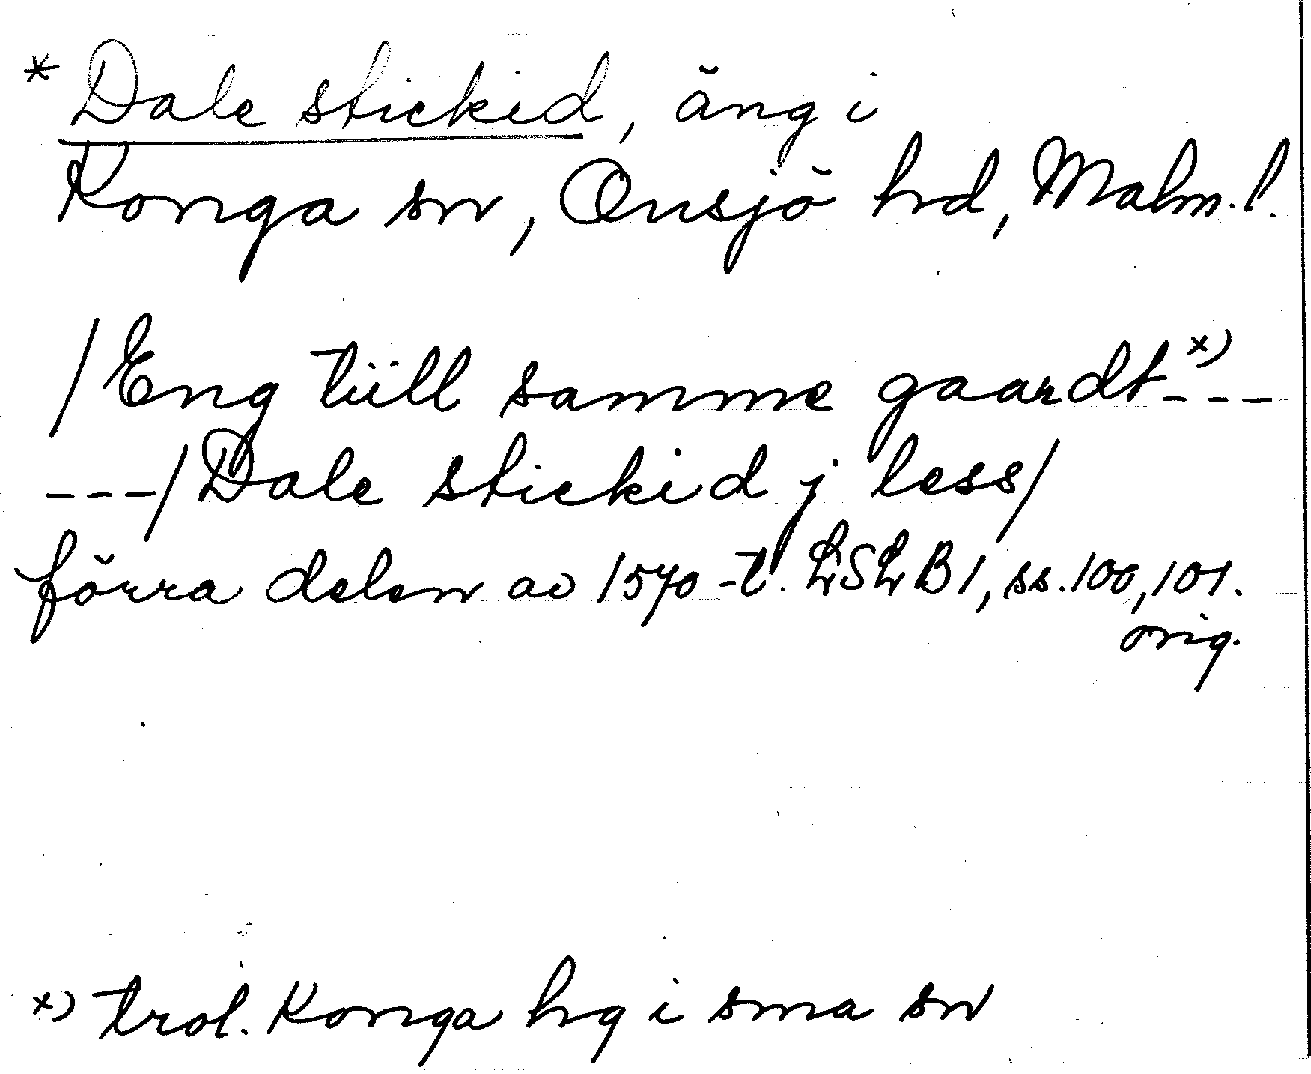 * Dale stickid, äng i
Konga sn, Onsjö hd, Malm. l.
/Eng tiill samme gaardt x) ---
---/Dale stickid j less/
förra delen av 1570-t. LSLB1, ss. 100, 101.
orig.
x) trol. Konga hg i sma sn